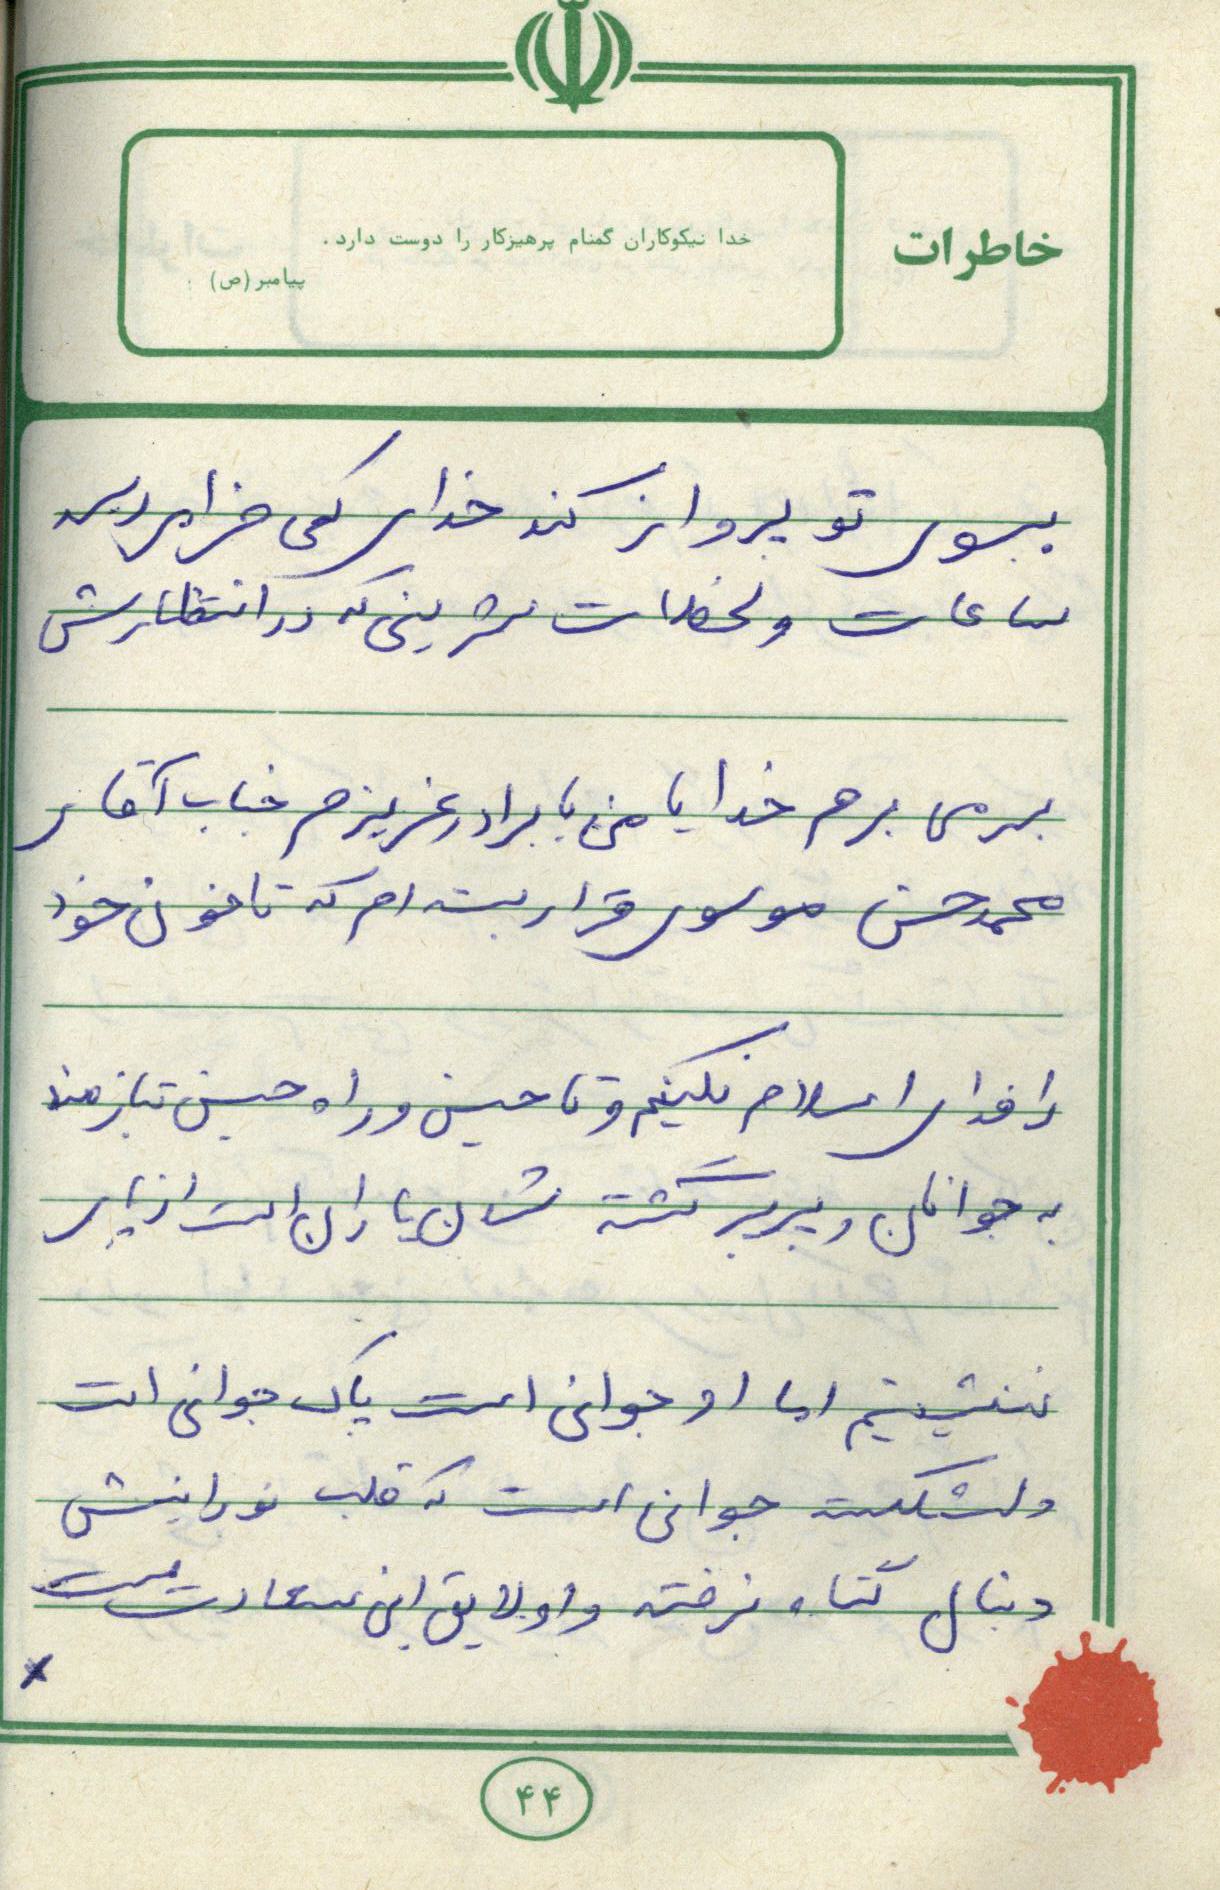 خاطرات
خدا نیکوکاران گمنام پرهیزکار را دوست دارد.
پیامبر (ص)
بسوی تو پرواز کند خدای کی فرا می‌رسد
ساعات و لحظات شیرینی که در انتظارش
بسر می برم خدایا من با برادر عزیزم جناب آقای
محمدحسن موسوی قرار بسته ام که تا خون خود
را فدای اسلام نکنیم و تا حسین و راه حسین نیازمند
به جوانان و پرپر گشته شدن یاران است از پای
ننشینیم اما او جوانی است پاک جوانی است
دلشکسته جوانی است که قلب نورانیش
دنبال گناه نرفته و او لایق این سعادت است
۴۴